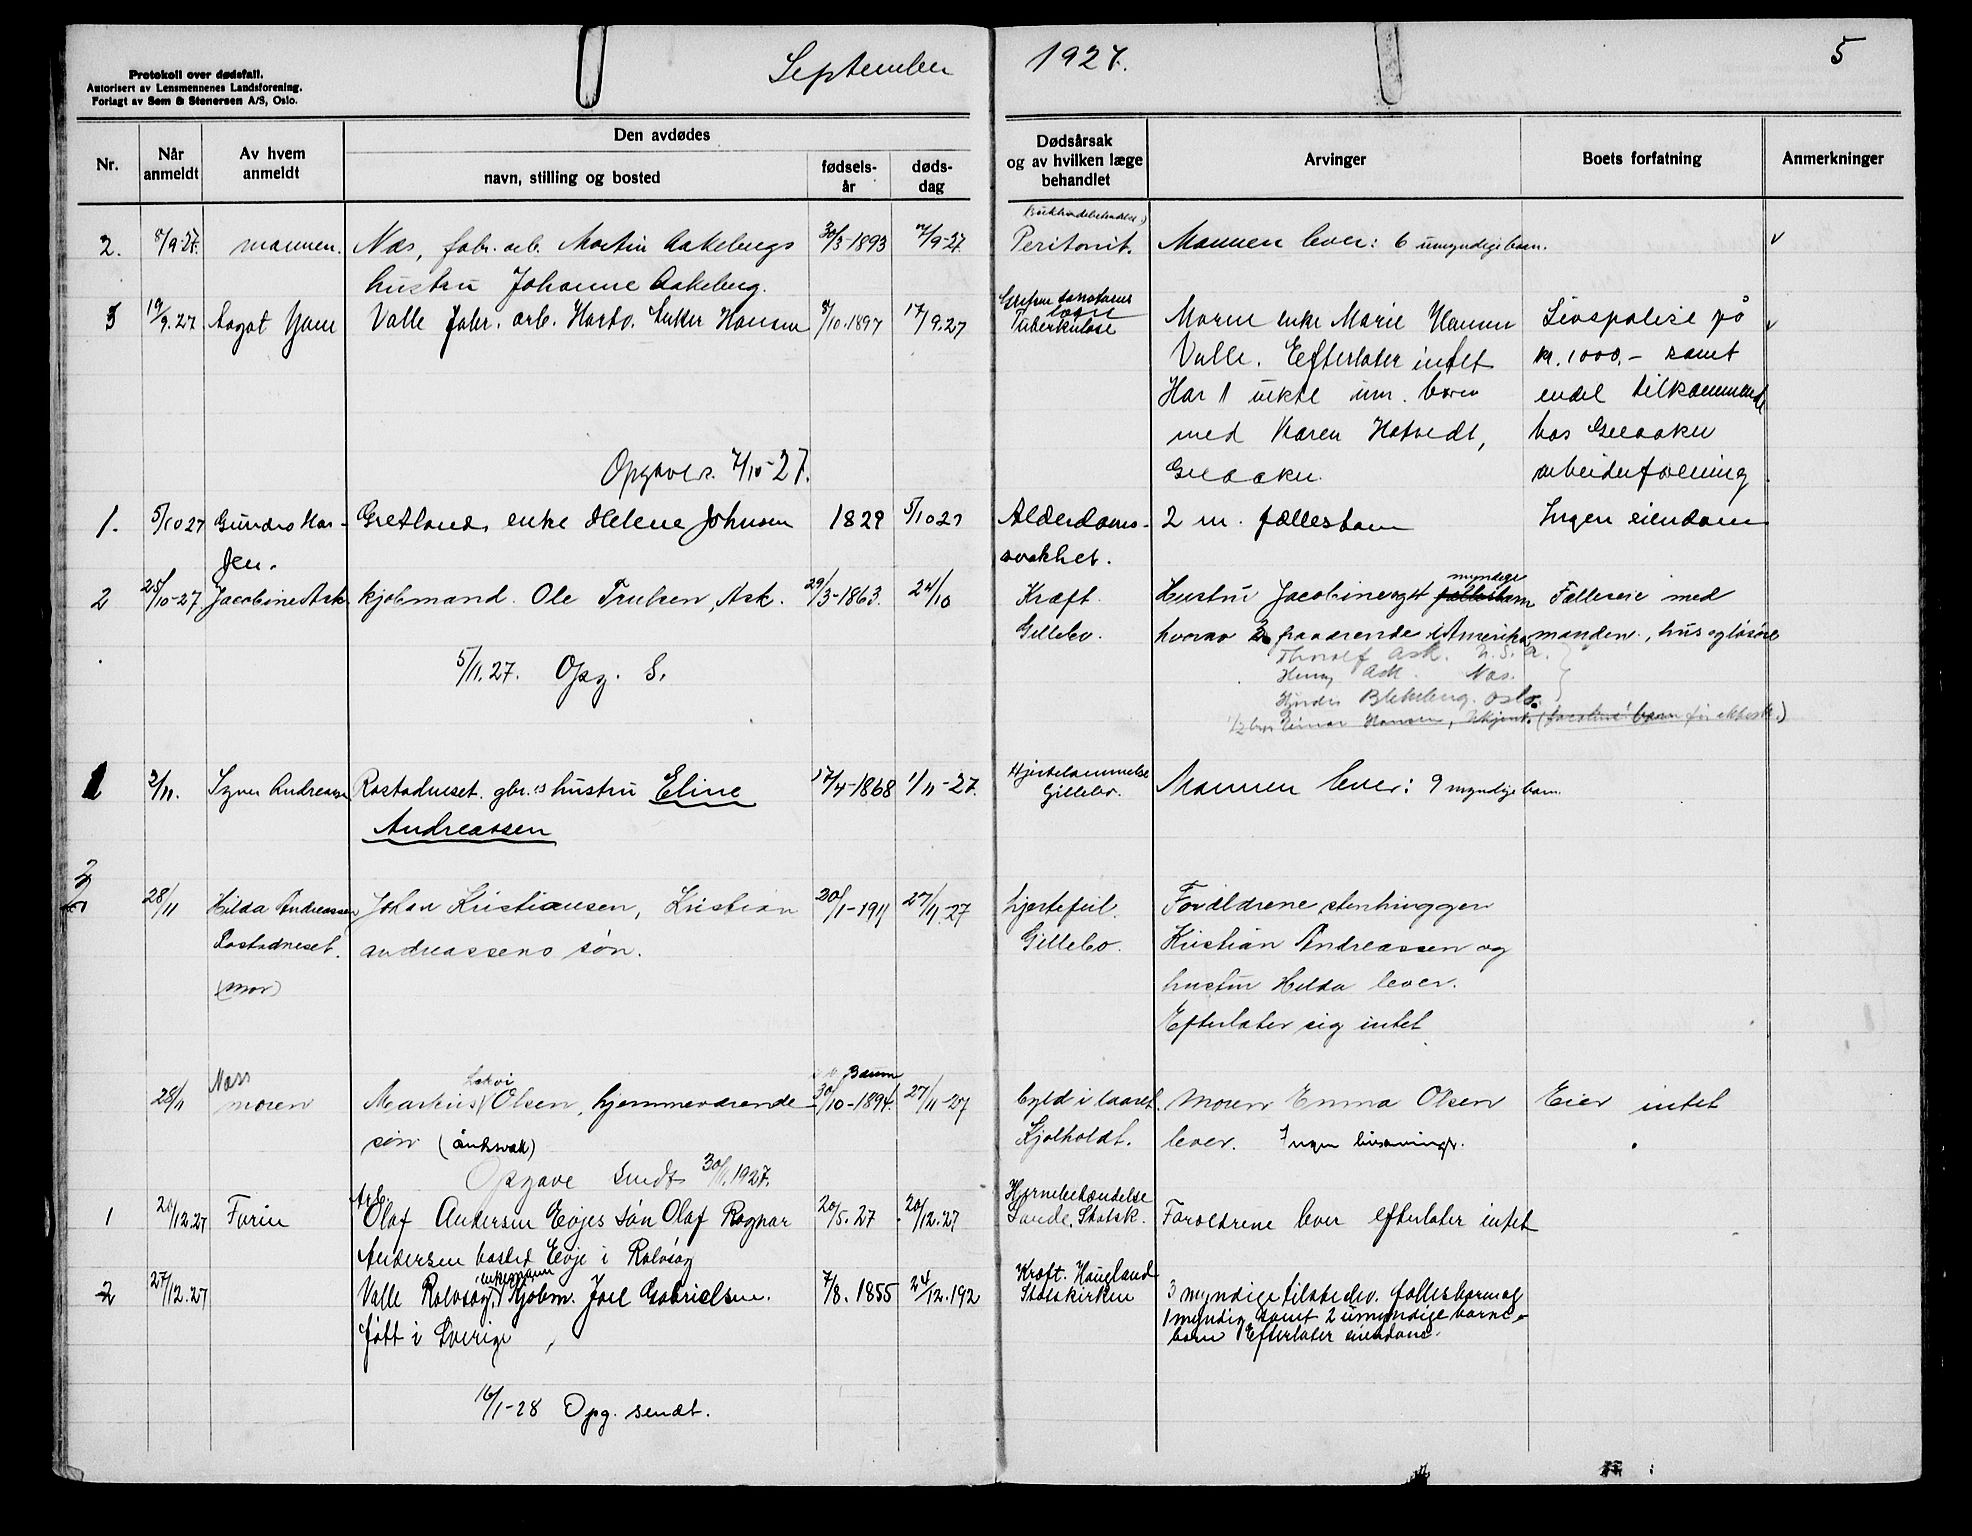 Protokoll over dødsfall.
Autorisert av Lensmennenes Landsforening.
Forlagt av Sem & Stenersen A/S, Oslo.
September 1927. 5
Nr.
Når anmeldt
Av hvem anmeldt
Den avdødes
navn, stilling og bosted
fødsels-år
døds-dag
Dødsårsak og av hvilken læge behandlet
Arvinger
Boets forfatning
Anmerkninger
2. 8/9-27. mannen. Næs, fabr. arb. Martin Aakebergs 30/3-1893 7/9-27. Peritonit. Mannen lever: 6 umyndige barn. v
hustru Johanne Aakeberg.
3 19/9.27 Aagot Valle fabr. arb. Hansen 8/10.1897 17/9.27 Tuberkulose Moren enke Marie Hansen Livspolise på v
Valle. Efterlater intet kr. 1000,- samt
Har 1 uekte um. barn endel tilkommende
med Karen Hatvedt, hos Greaaker
Greaaker arbeiderforening
Opgave s. 7/10-27.
1. 5/10 27 Gundro Han- Gretland, enke Helene Johnsen 1829 5/10 27 Alderdoms- 2 m. fællesbarn Ingen eiendom
sen. svakhet.
2 25/10-27 Jacobine Ask kjøbmand. Ole Trulsen, Ask. 29/3-1863. 24/10 Kræft. Hustru Jacobine og 4 myndige fællesbarn Fælleseie med
Gillebo. hvorav 2 fraværende i Amerika manden., hus og løsøre
Thoralf Ask. U.S.A.
5/11.27. Opg. S.
Henry Ask. Næs.
Blekeberg. Oslo.
Einar Hansen,
1 2/11. Signe Andreassen Rostadneset. gbr.s hustru Eline 17/4-1868 1/11-27. Hjertelammelse Mannen lever: 9 myndige barn.
Andreassen Gillebo.
2
28/11 Hilda Andreassen Johan Kristiansen, Kristian 20/1-1911 27/11-27 hjertefeil. Forældrene, stenhugger
Rostadneset. andreassens søn. Gillebo. Kristian Andreassen og
(mor) hustru Hilda lever.
Efterlater sig intet
28/11 Næss moren Markus Olsen, hjemmeværende 30/10-1894. 27/11-27 byld i laaret. Moren Emma Olsen Eier intet
søn (åndsvak) Kjølholdt. lever. Ingen
Opgave sendt 30/11.1927.
1 20/12.27 Farin Arb. Olaf Andersen Evjes søn Olaf Ragnar 20/5.27 20/12.27 Hjernebetændelse Foreldrene lever efterlater intet
Andersen bosted Evje i Rolvsøy Sande, Stotsk.
2 27/12.27 Valle Rolvsøy, enkemann Kjøbm. Joel Gabrielsen. 7/8.1855 24/12.192 Kræft. Haugland 3 myndige tilstedev. fellesbarn og
født i Sverige Stotskirken 1 myndig samt 2 umyndige barne-
barn Efterlater eiendom.
16/1-28 Opg. sendt.